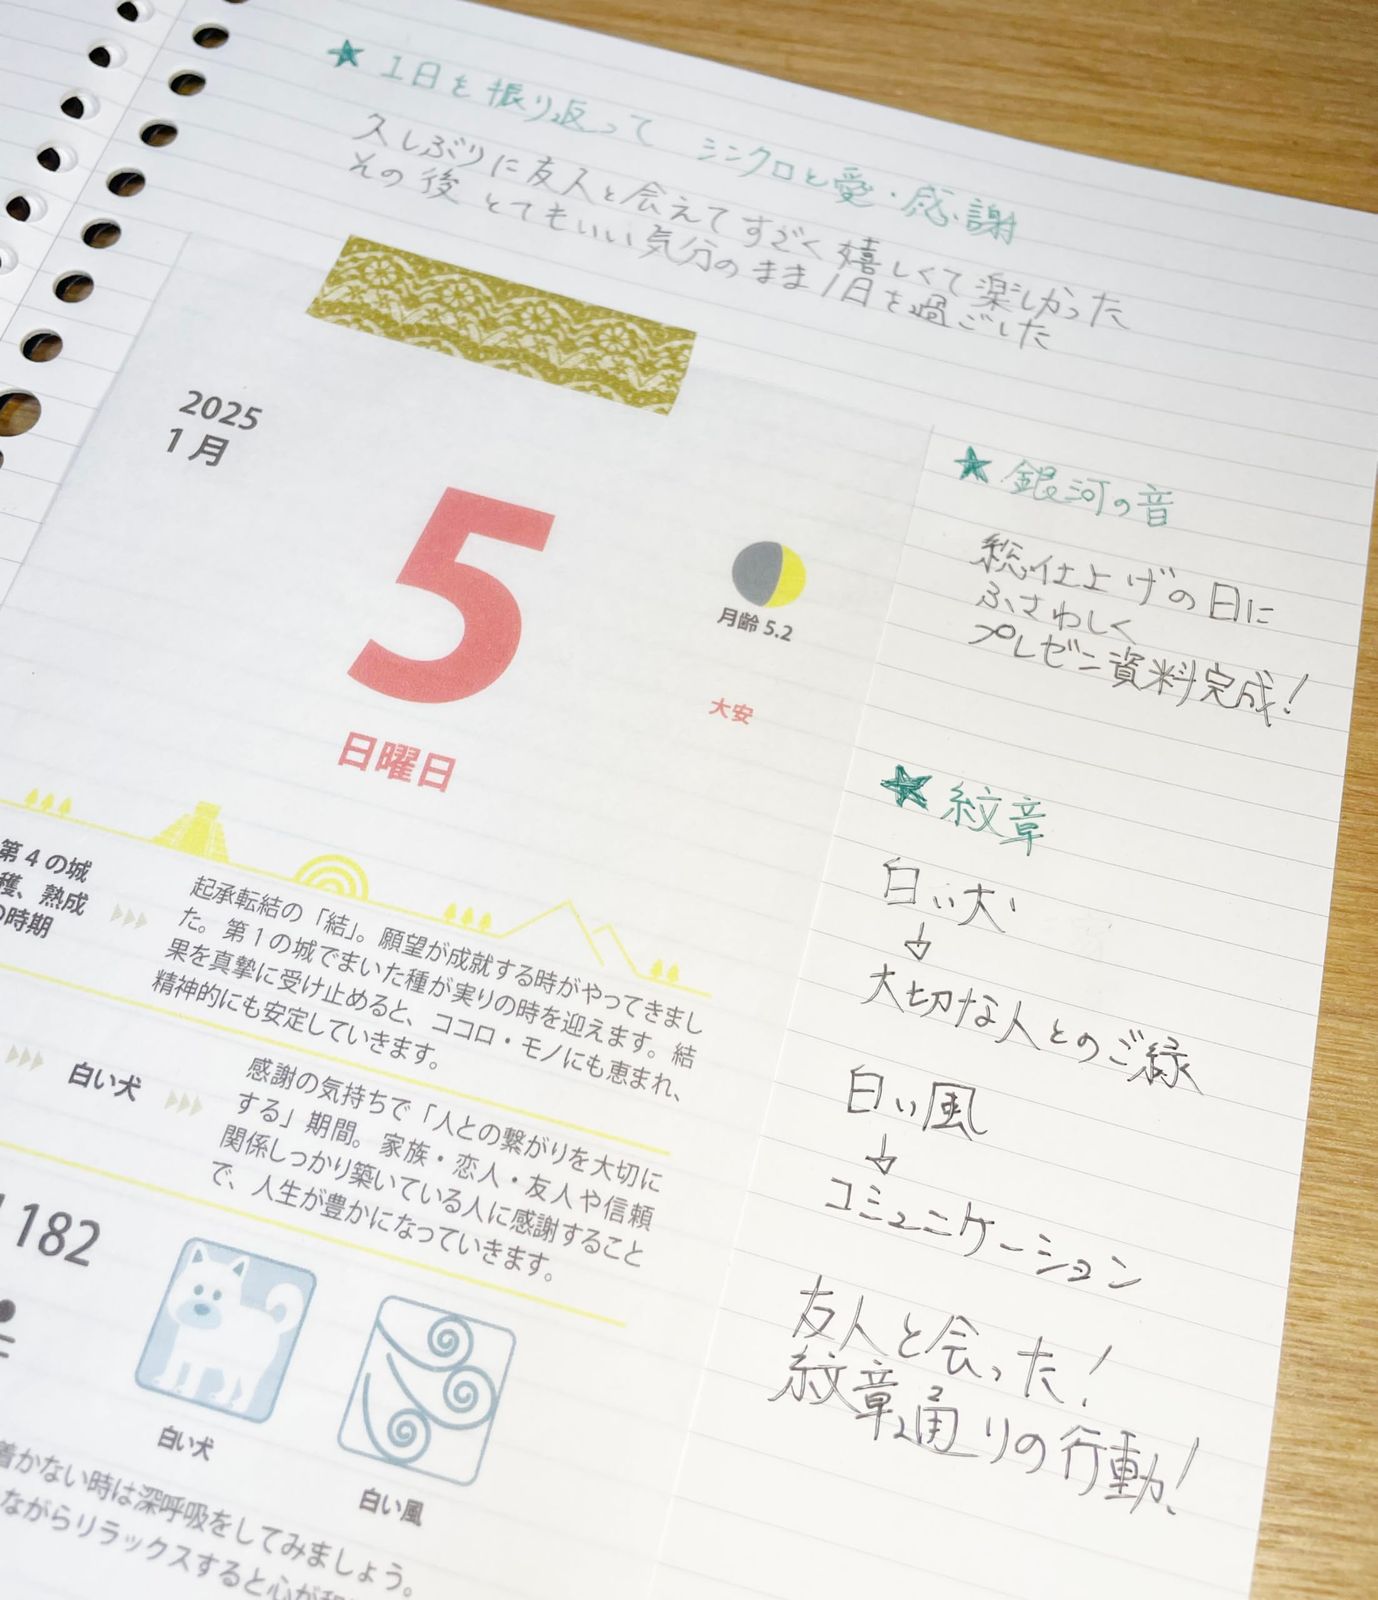 ★1日を振り返って シンクロと愛・感謝
久しぶりに友人と会えてすごく嬉しくて楽しかった
その後とてもいい気分のまま1日を過ごした
2025
1月
5
日曜日
月齢 5.2
大安
★銀河の音
総仕上げの日に
ふさわしく
プレゼン資料完成!
★紋章
白い犬
↓
大切な人とのご縁
白い風
↓
コミュニケーション
友人と会った!
紋章通りの行動!
第4の城
穫、熟成
の時期
起承転結の「結」。願望が成就する時がやってきまし
た。第1の城でまいた種が実りの時を迎えます。結
果を真摯に受け止めると、ココロ・モノにも恵まれ、
精神的にも安定していきます。
白い犬
感謝の気持ちで「人との繋がりを大切に
する」期間。家族・恋人・友人や信頼
関係しっかり築いている人に感謝すること
で、人生が豊かになっていきます。
182
白い犬
白い風
着かない時は深呼吸をしてみましょう。
ながらリラックスすると心が